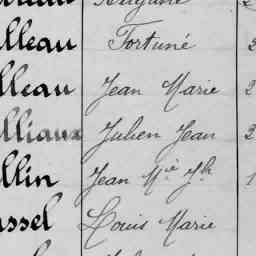 lleau Fortuné
lleau Jean Marie 2
lliaux Julien Jean
llin Jean Mie Jh 1
ssel Louis Marie